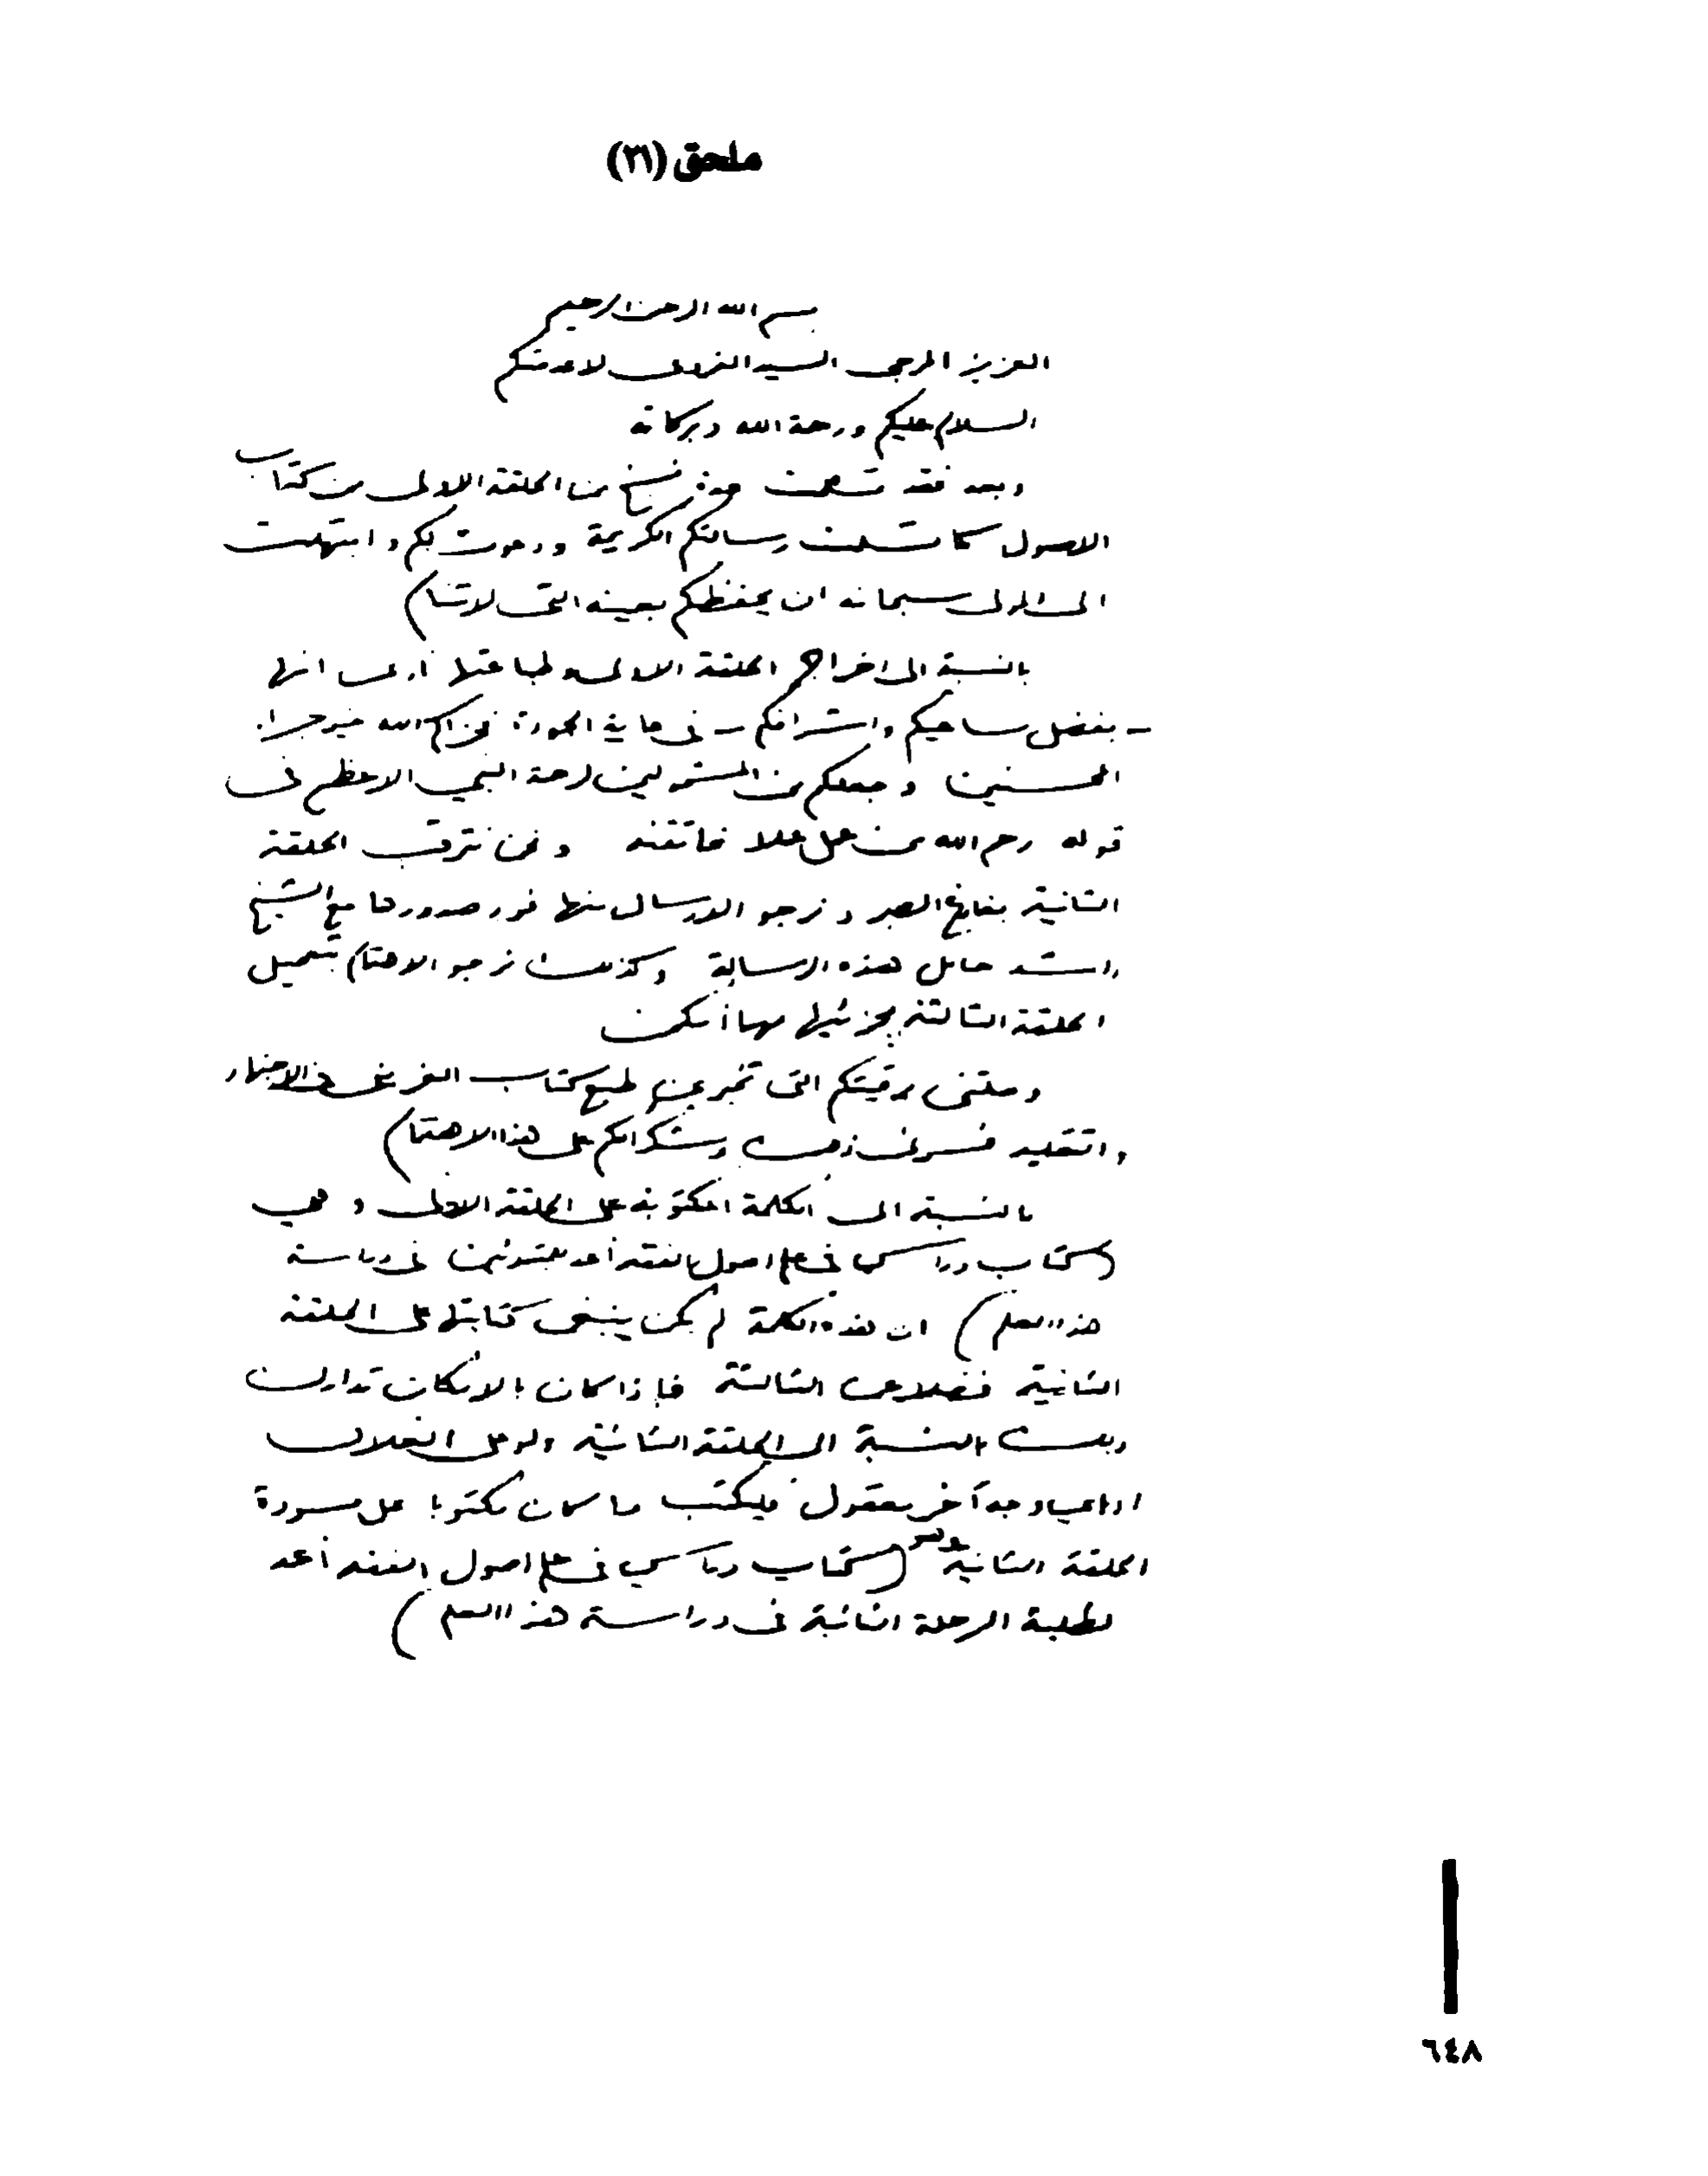 ملحق (٣١)
بسم الله الرحمن الرحيم
العزيز المرجى السيد الغروي لا عدمتكم
السلام عليكم ورحمة الله وبركاته
وبعد فقد تسلمت نسخ من الحلقة الاولى من كتاب
الاصول كما تسلمت رسالتكم الكريمة ودعوت لكم وابتهلت
الى المولى سبحانه ان يحفظكم بعينه التي لا تنام
بالنسبة الى اخراج الحلقة الاولى وطباعتها أرى انها
- بفضل مساعيكم واشرافكم - في غاية الجودة فجزاكم الله خير جزاء
المحسنين وجعلكم من المشمولين لرحمة النبي الاعظم في
قوله رحم الله من عمل عملا فاتقنه ونحن نترقب الحلقة
الثانية بفارغ الصبر ونرجو الارسال منها فور صدورها مع الشيخ
راشد حامل هذه الرسالة وكذلك نرجو الاهتمام بتعجيل
الحلقة الثالثة بجزئيها مهما أمكن
وصلتني برقيتكم التي تخبر عن طبع كتاب الغروي في الاجتهاد
والتقليد فسرني ذلك وشكرا لكم على هذا الاهتمام
بالنسبة الى الكلمة المكتوبة على الحلقة الاولى وهي
(كتاب دراسي في علم اصول الفقه أعد للمبتدئين في دراسة
هذا العلم) ان هذه الكلمة لم يكن ينبغي كتابتها على الحلقة
الثانية فضلا عن الثالثة فإذا كان بالامكان تدارك
ذلك بالنسبة الى الحلقة الثانية ولو على الغلاف
او باي وجه آخر معقول فليكتب ما كان مكتوبا على مسودة
الحلقة الثانية وهو (كتاب دراسي في علم اصول الفقه أعد
لطلبة المرحلة الثانية في دراسة هذا العلم)
٦٤٨